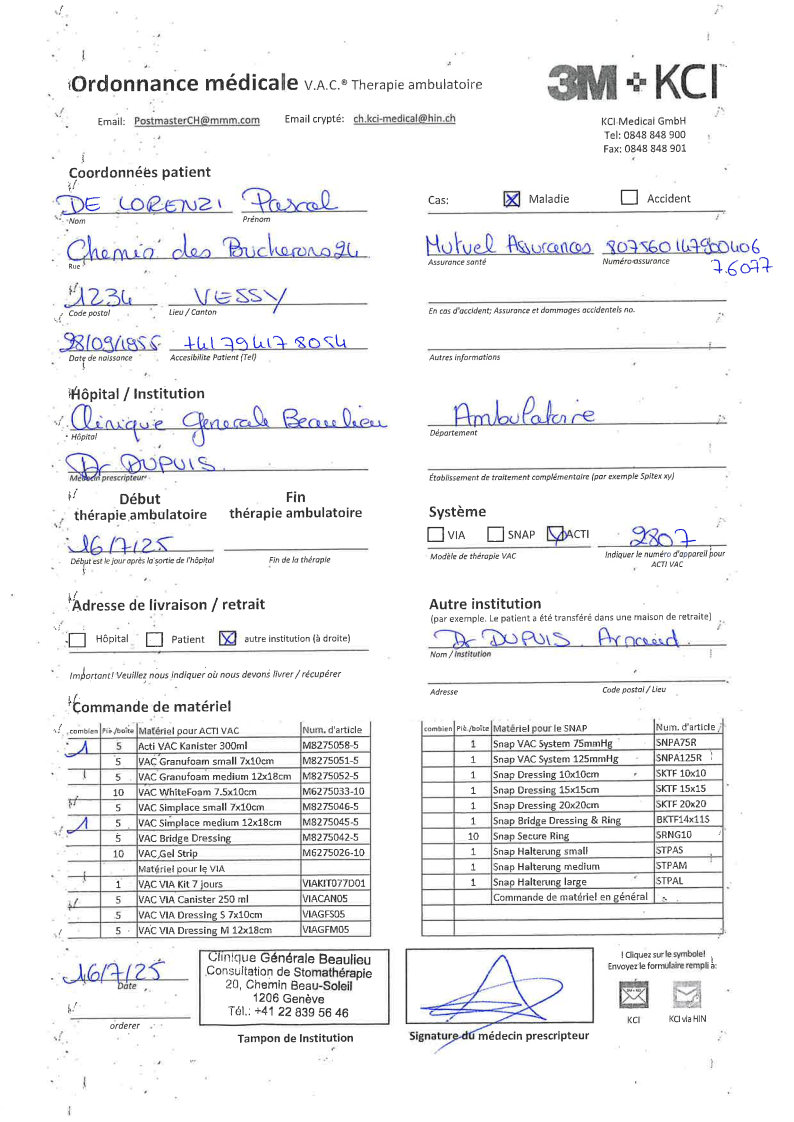 Ordonnance médicale V.A.C.® Therapie ambulatoire
3M KCI
Email: PostmasterCH@mmm.com Email crypté: ch.kci-medical@hin.ch
KCI Medical GmbH
Tel: 0848 848 900
Fax: 0848 848 901
Coordonnées patient
DE LORENZI Pascal
Nom Prénom
Cas: Maladie Accident
Chemin des Bucherons 24
Rue
Mutuel Assurances 807560147900406
76077
Assurance santé Numéro assurance
1234 VESSY
Code postal Lieu / Canton
En cas d'accident; Assurance et dommages accidentels no.
28/09/1955 +41 79 417 80 54
Date de naissance Accesibilite Patient (Tel)
Autres informations
Hôpital / Institution
Clinique Generale Beaulieu
Hôpital
Ambulatoire
Département
Dr DUPUIS
Médecin prescripteur
Établissement de traitement complémentaire (par exemple Spitex xy)
Début thérapie ambulatoire
Fin thérapie ambulatoire
16/7/25
Début est le jour après la sortie de l'hôpital Fin de la thérapie
Système
VIA SNAP ACTI 2807
Modèle de thérapie VAC Indiquer le numéro d'appareil pour
ACTI VAC
Adresse de livraison / retrait
Hôpital Patient autre institution (à droite)
Important! Veuillez nous indiquer où nous devons livrer / récupérer
Autre institution
(par exemple. Le patient a été transféré dans une maison de retraite)
Dr DUPUIS Arnaud
Nom / Institution
Adresse Code postal / Lieu
Commande de matériel
combien Piè./boîte Matériel pour ACTI VAC Num. d'article
1 5 Acti VAC Kanister 300ml M8275058-5
5 VAC Granufoam small 7x10cm M8275051-5
5 VAC Granufoam medium 12x18cm M8275052-5
10 VAC WhiteFoam 7.5x10cm M6275033-10
5 VAC Simplace small 7x10cm M8275046-5
1 5 VAC Simplace medium 12x18cm M8275045-5
5 VAC Bridge Dressing M8275042-5
10 VAC Gel Strip M6275026-10
Matériel pour le VIA
1 VAC VIA Kit 7 jours VIAKIT077D01
5 VAC VIA Canister 250 ml VIACAN05
5 VAC VIA Dressing S 7x10cm VIAGFS05
5 VAC VIA Dressing M 12x18cm VIAGFM05
combien Piè./boîte Matériel pour le SNAP Num. d'article
1 Snap VAC System 75mmHg SNPA75R
1 Snap VAC System 125mmHg SNPA125R
1 Snap Dressing 10x10cm SKTF 10x10
1 Snap Dressing 15x15cm SKTF 15x15
1 Snap Dressing 20x20cm SKTF 20x20
1 Snap Bridge Dressing & Ring BKTF14x11S
10 Snap Secure Ring SRNG10
1 Snap Halterung small STPAS
1 Snap Halterung medium STPAM
1 Snap Halterung large STPAL
Commande de matériel en général
16/7/25
Date
orderer
Clinique Générale Beaulieu
Consultation de Stomathérapie
20, Chemin Beau-Soleil
1206 Genève
Tél.: +41 22 839 56 46
Tampon de Institution
Signature du médecin prescripteur
! Cliquez sur le symbole!
Envoyez le formulaire rempli à:
KCI KCI via HIN